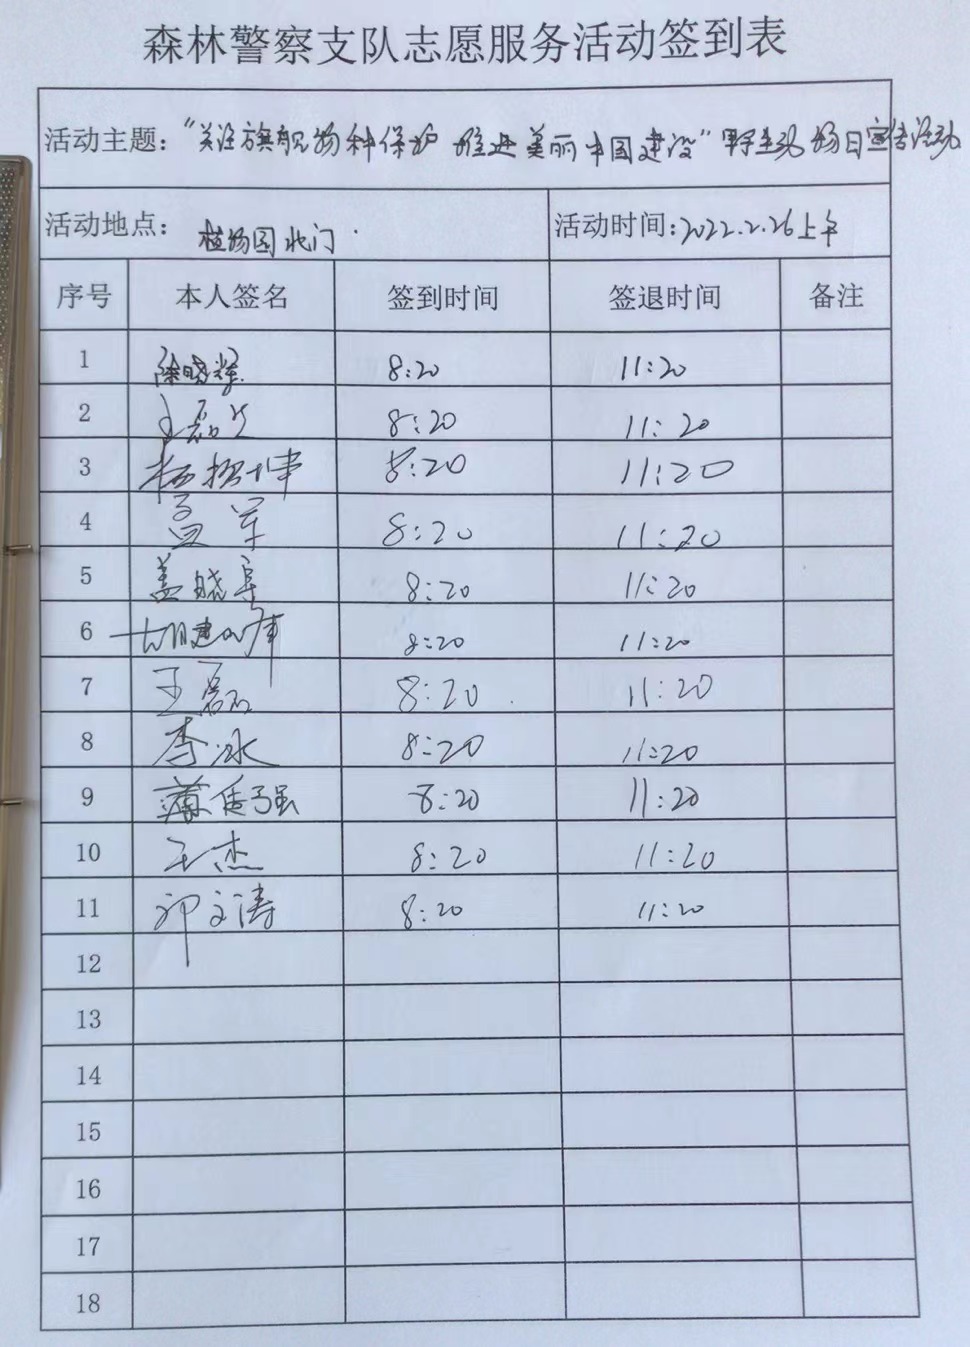 森林警察支队志愿服务活动签到表
活动主题:“关注旗舰物种保护 推进美丽中国建设”野生动物日宣传活动
活动地点: 植物园北门 活动时间:2022.2.26上午
序号 本人签名 签到时间 签退时间 备注
1 陈晓辉 8:20 11:20
2 8:20 11:20
3 8:20 11:20
4 孟军 8:20 11:20
5 盖晓军 8:20 11:20
6 8:20 11:20
7 王磊 8:20 11:20
8 李冰 8:20 11:20
9 8:20 11:20
10 王杰 8:20 11:20
11 文涛 8:20 11:20
12
13
14
15
16
17
18